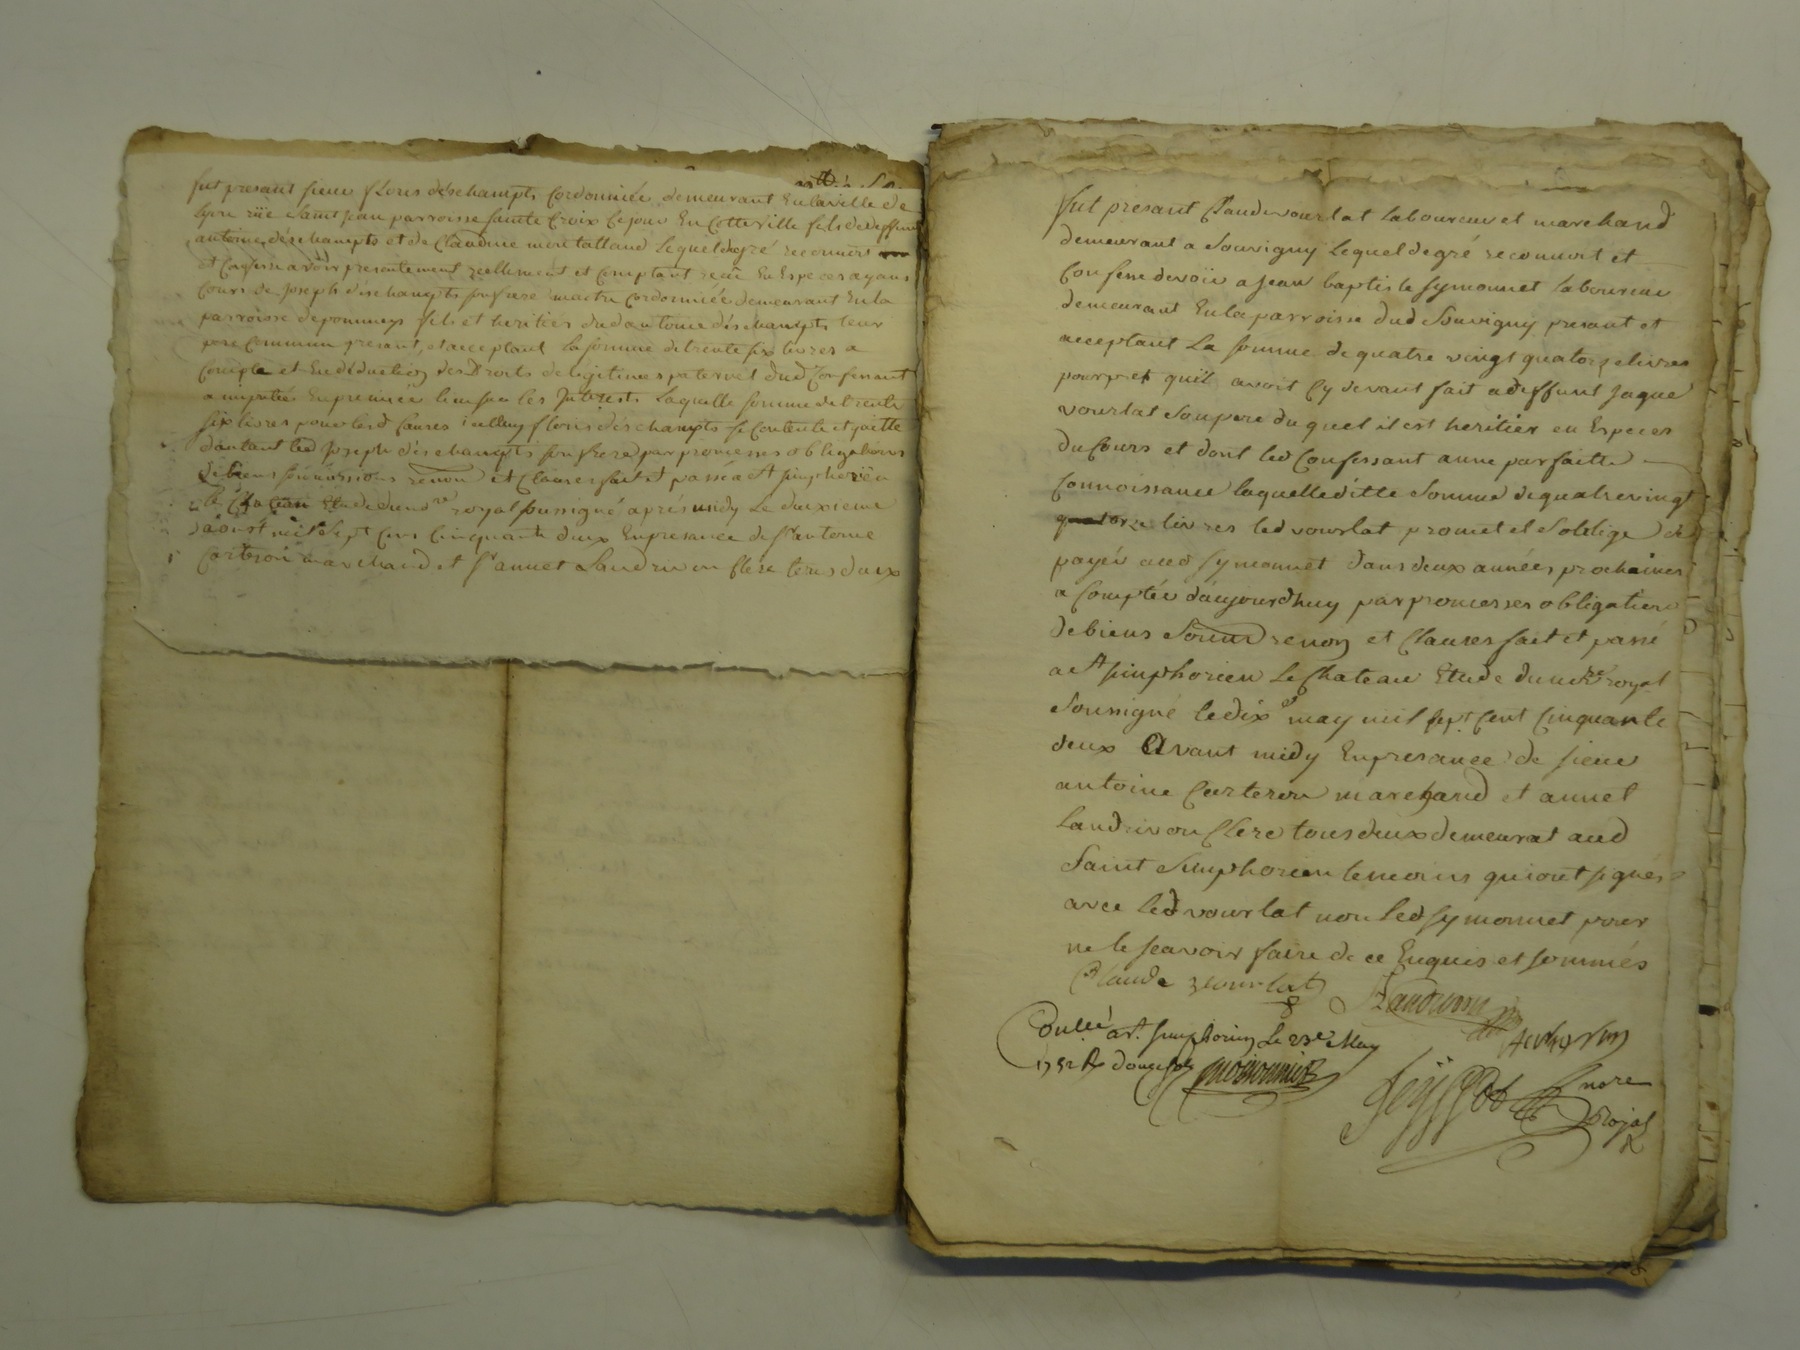 fut présant sieur floris déschampts Cordonniée demeurant En la ville de
lyon rüe Saint Jean parroisse sainte Croix Ce jour En Cotte ville fils de deffunt
antoine déschampts et de Claudine montalland Lequel degré reconnoit
et Confesse avoir presentement reellement et Comptant reçu En Especes ayans
Cours de Joseph déschampts son frere maitre Cordonniée demeurant En la
parroisse de pommeys fils et heritiés dud antoine déschampts leur
pere Commun présant, et acceptant la somme de trente six livres a
Compte et En déduction des Droits de legitimes paternel dud Confessant
a imputée En premiée lieu sur les Interests Laquelle somme de trente
six livres pour lesd Causes icelluy floris déschampts se Contente et quitte
dautant led Joseph déschampts son frere par promesses obligations
de biens soumissions renon et Clauses fait et passé a St simphorien
le Chateau Etude du no.re royal soussigné aprés midy Le deuxieme
daoust mil sept Cens Cinquante deux En presance de sr antoine
Carteron marchand et sr annet Landrivon Clere tous deux
fut présant Claude vourlat laboureur et marchand
demeurant a Souvigny Lequel degré reconnoit et
Confesse devoir a Jean baptiste symonnet laboureur
demeurant En la parroisse dud Souvigny présant et
acceptant La somme de quatre vingt quatorze livres
pour pret quil avoit Cy devant fait a deffunt Jaque
vourlat Son pere du quel il est heritiér en Especes
du Cours et dont led Confessant a une parfaitte
Connoissance laquelle ditte Somme de quatre vingt
quatorze livres led vourlat promet et Soblige de
payér aud symonnet Dans deux années prochaines
a Comptér daujourdhuy par promesses obligation
de biens Soum renon et Clauses fait et passé
a St simphorien Le Chateau Etude du no.re royal
Soussigné le dix may mil sept Cent Cinquante
deux Avant midy En presance de sieur
antoine Carteron marchand et annet
Landrivon Clerc tous deux demeurat aud
Saint Simphorien temoins qui ont signés
avec led vourlat non led symonnet pour
ne le scavoir faire de ce Enquis et sommés
Claude vourlat Landrivon
Carteron
Conllé a St. simphorien Le 23e May
1752 R douze sols
nore
Royal